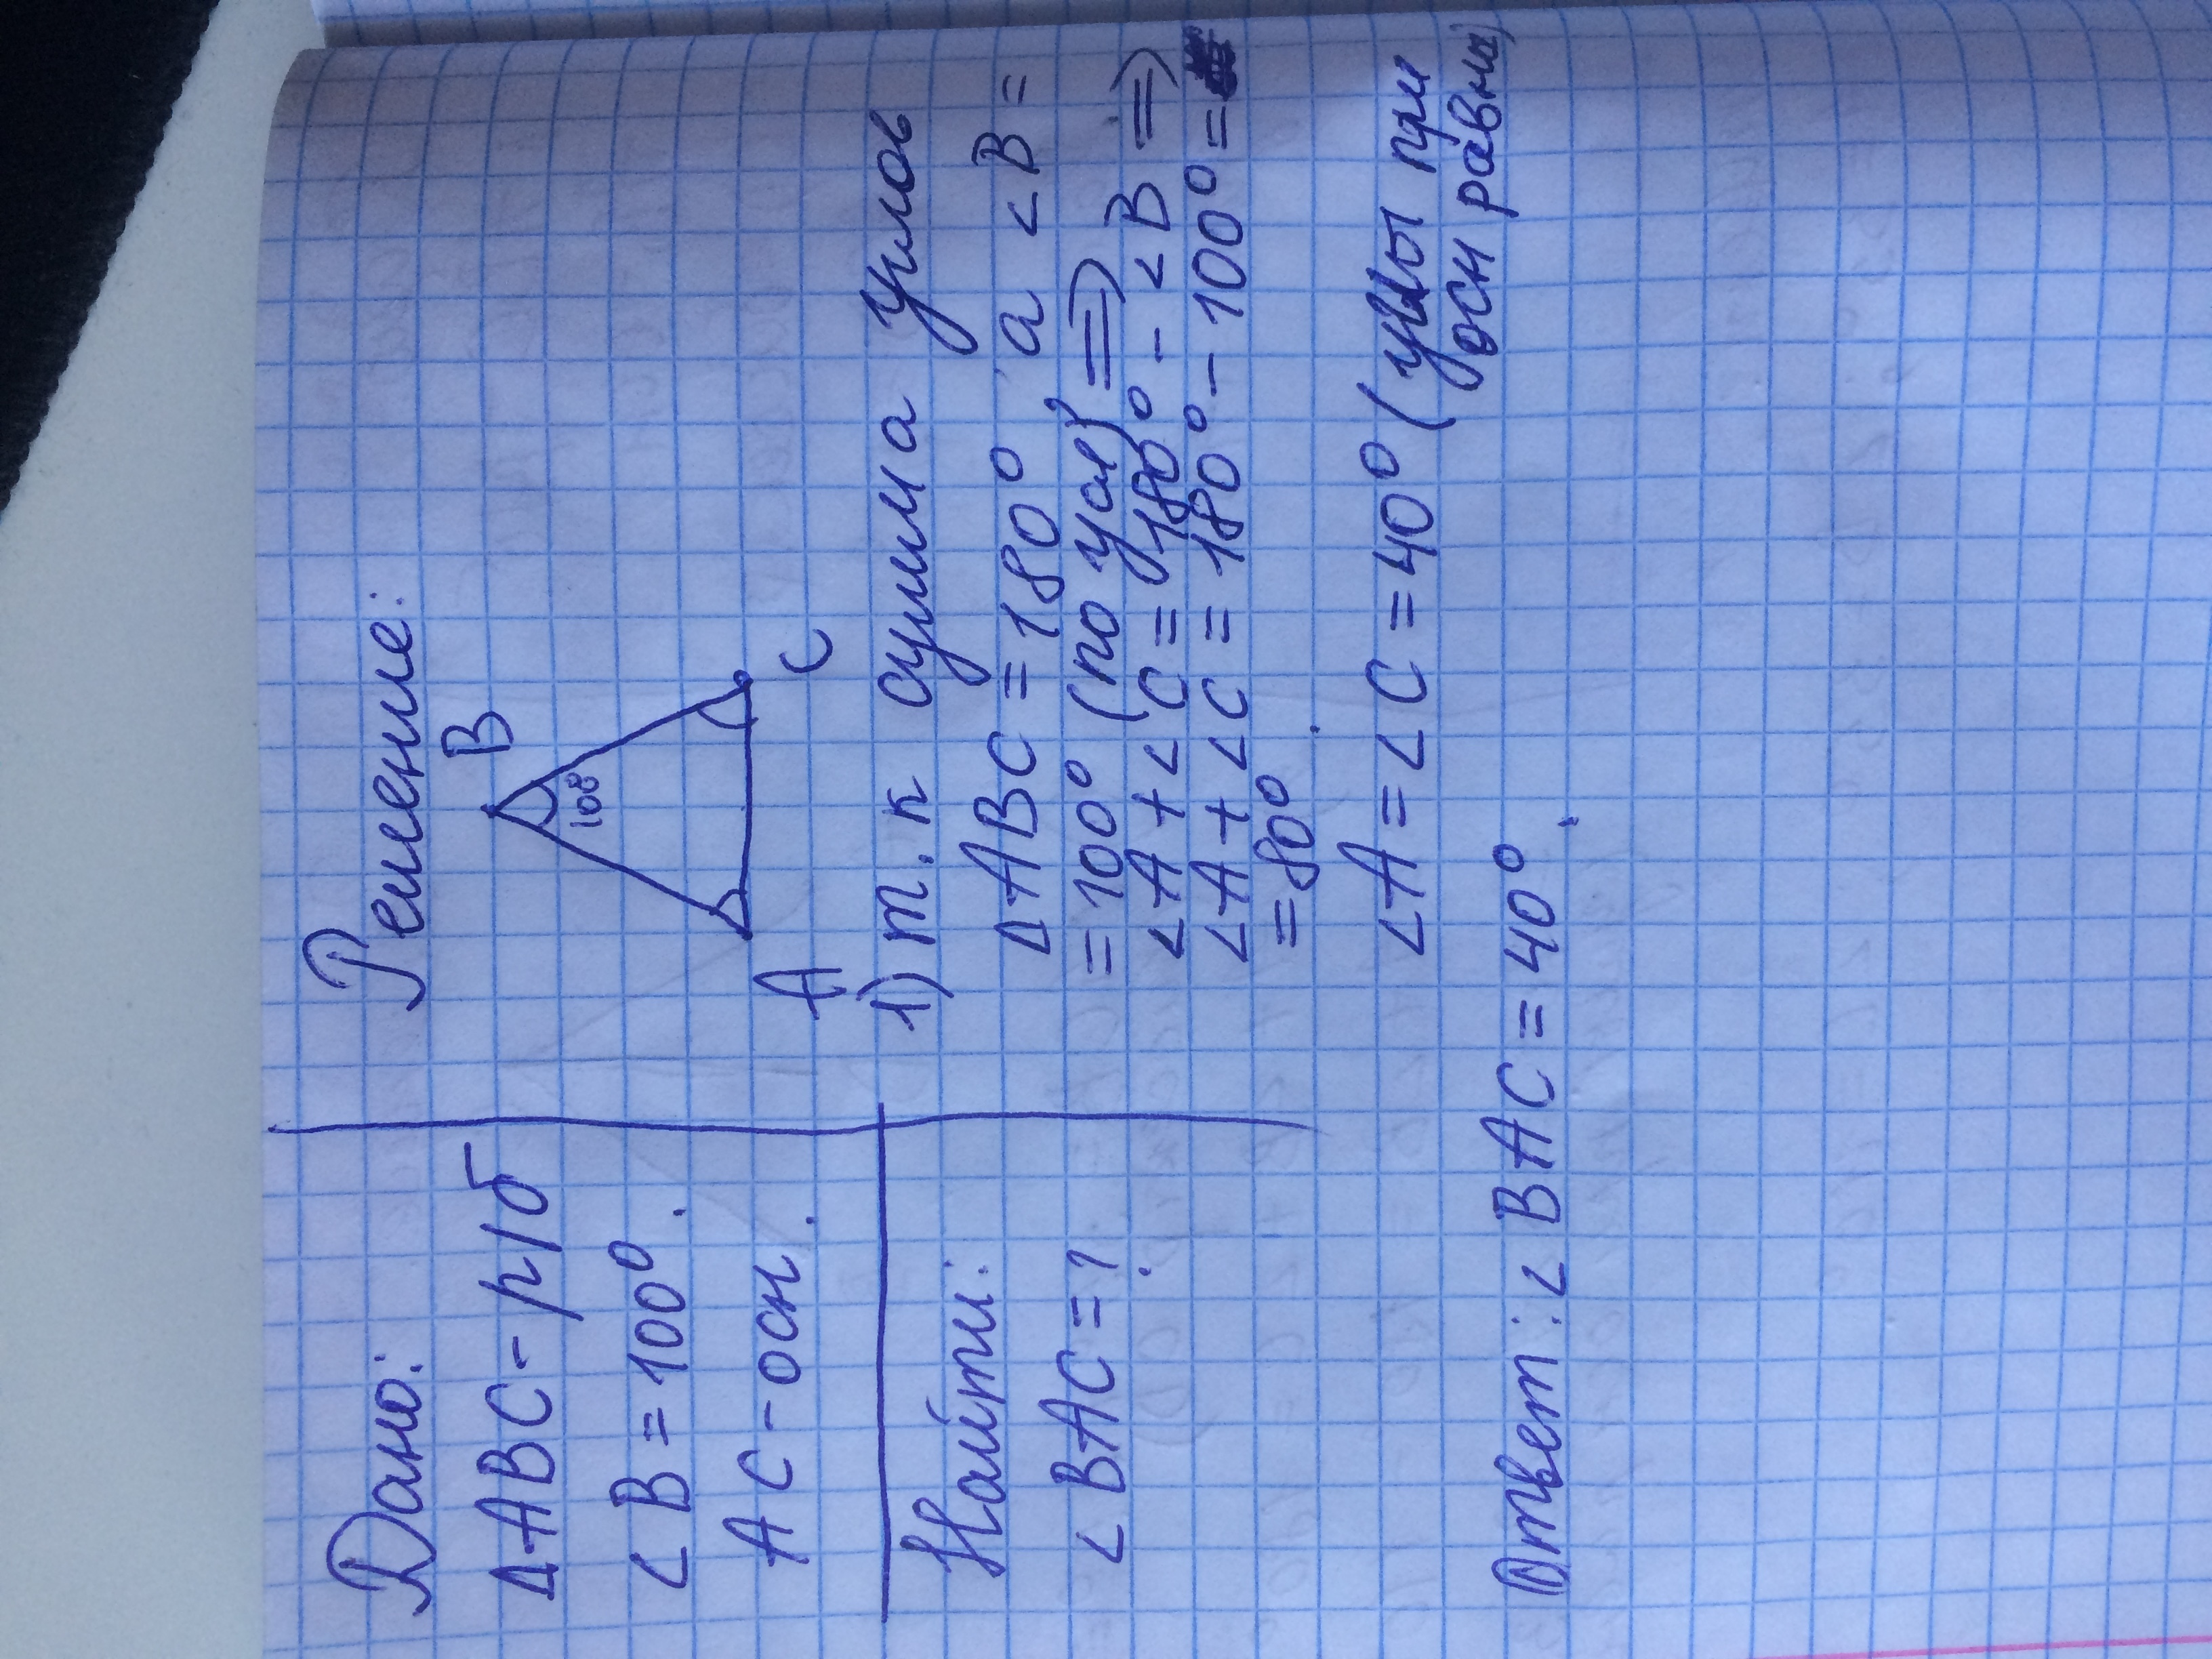 Дано:
ΔABC - р/б
∠B = 100°.
AC - осн.
Найти:
∠BAC = ?
Решение:
B
100
A
C
1) т.к сумма углов
ΔABC = 180°, а ∠B =
= 100° (по усл) =>
∠A + ∠C = 180° - ∠B =>
∠A + ∠C = 180° - 100° =
= 80°.
∠A = ∠C = 40° (углы при
осн равны)
Ответ: ∠BAC = 40°.